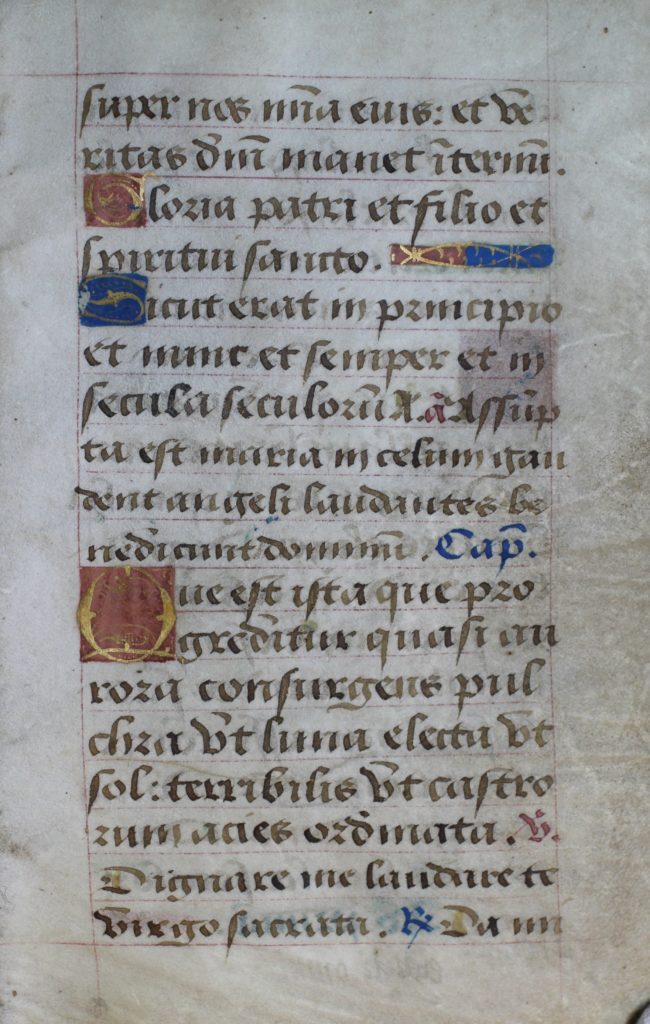 super nos mīa eius: et ve
ritas dn̄i manet īternū.
Gloria patri et filio et
spiritui sancto.
Sicut erat in principio
et nunc et semper et in
secula seculorū A. a Assūp
ta est maria in celum gau
dent angeli laudantes be
nedicunt dominū. Cap̄.
Que est ista que pro
greditur quasi au
rora consurgens pul
chra vt luna electa vt
sol: terribilis vt castro
rum acies ordinata. V.
Dignare me laudare te
virgo sacrata. R Da mi